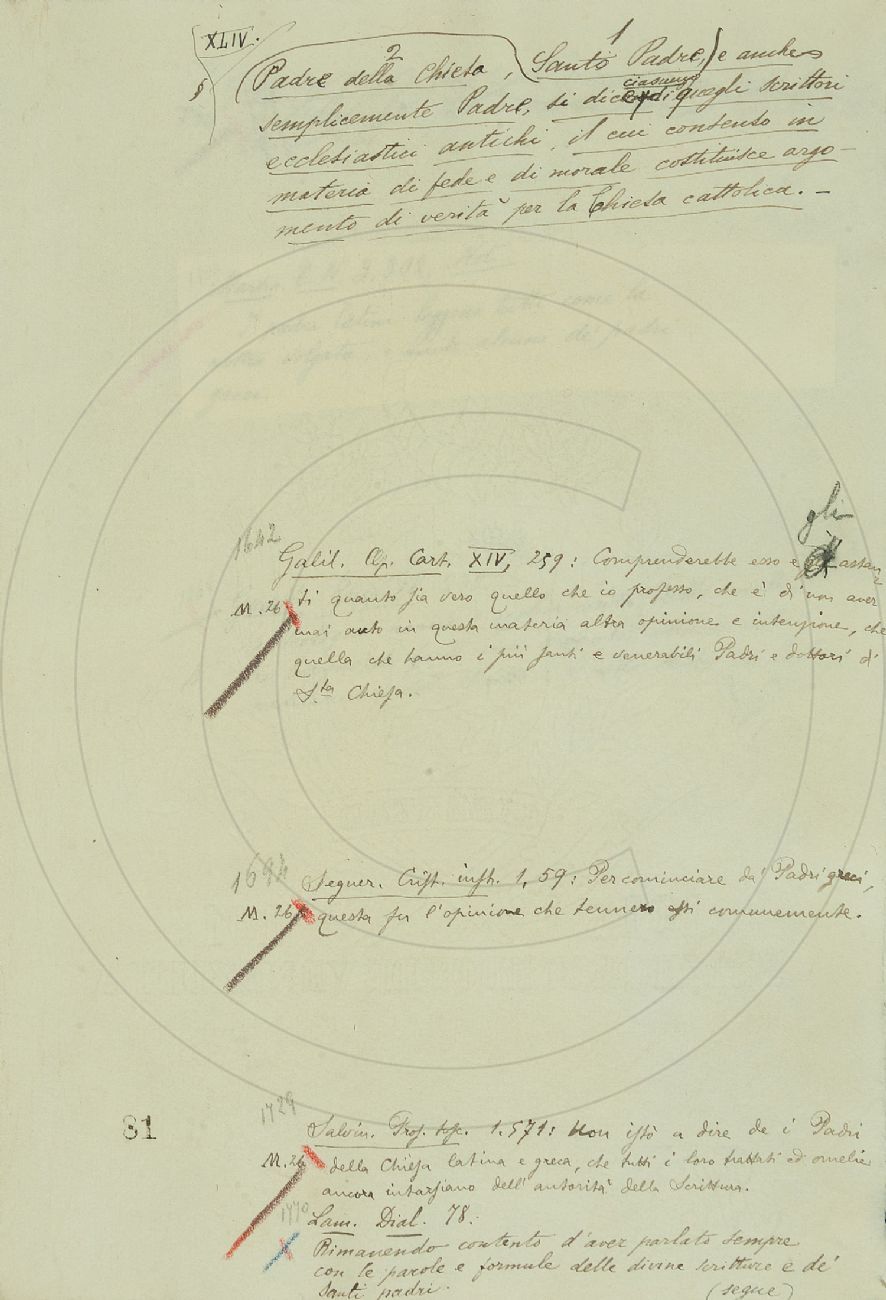 XLIV.
2 1
§ (Padre della Chiesa, Santo Padre,) e anche
ciascuno
semplicemente Padre, si dice di quegli scrittori
ecclesiastici antichi, il cui consenso in
materia di fede e di morale costituisce argo-
mento di verità per la Chiesa cattolica. –
gli
1642
Galil. Op. Cart. XIV, 259: Comprenderebbe esso e astan
M. 26 ti quanto sia vero quello che io professo, che è di non aver
mai auto in questa materia altra opinione e intenzione, che
quella che hanno i più santi e venerabili Padri e dottori di
S.ta Chiesa.
1694
Segner. Crist. instr. 1, 59: Per cominciare da' Padri greci,
M. 26 questa fu l'opinione che tennero essi comunemente.
1729
81
Salvin. Pros. tosc. 1. 571: Non istò a dire de i Padri
M. 26 della Chiesa latina e greca, che tutti i loro trattati ed omelie
ancora intarsiano dell'autorità della Scrittura.
1770
Lam. Dial. 78:
Rimanendo contento d'aver parlato sempre
con le parole e formule delle divine scritture e de'
santi padri.
(segue)